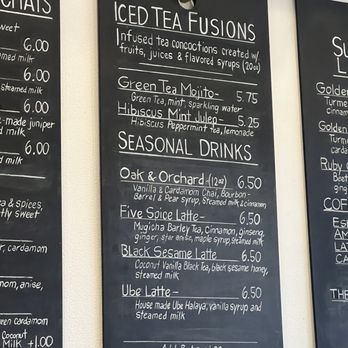 CHAIS
sweet
6.00
med milk
6.00
steamed milk
-made juniper
d milk
6.00
steamed milk
& spices,
tly sweet
ar, cardamom
mon, anise,
een cardamom
Coconut
Milk +1.00
ICED TEA FUSIONS
Infused tea concoctions created w/
fruits, juices & flavored syrups (20oz)
Green Tea Mojito- 5.75
Green Tea, mint, sparkling water
Hibiscus Mint Julep- 5.25
Hibiscus Peppermint Tea, lemonade
SEASONAL DRINKS
Oak & Orchard-(12oz) 6.50
Vanilla & Cardamom Chai, Bourbon-
Barrel & Pear syrup, Steamed milk & cinnamon
Five Spice Latte- 6.50
Mugicha Barley Tea, Cinnamon, Ginseng,
ginger, star anise, maple syrup, steamed milk
Black Sesame Latte 6.50
Coconut Vanilla Black Tea, black sesame honey,
steamed milk
Ube Latte- 6.50
House made Ube Halaya, vanilla syrup and
steamed milk
Su
L
Golden
Turme
Golden
Turme
carda
Ruby
Beet
ging
COF
Esp
Am
Lat
Ca
THE